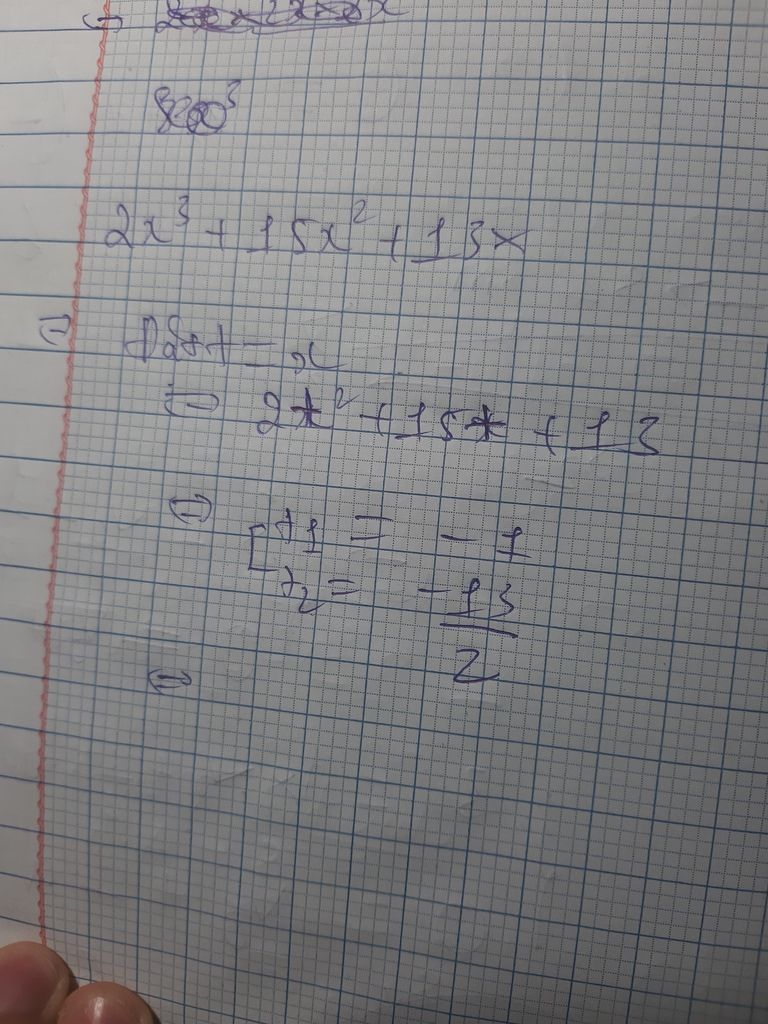 2x³ + 15x² + 13x
⇔ Đặt t = x
⇔ 2t² + 15t + 13
⇔ [ t1 = -1
t2 = -13/2
⇔